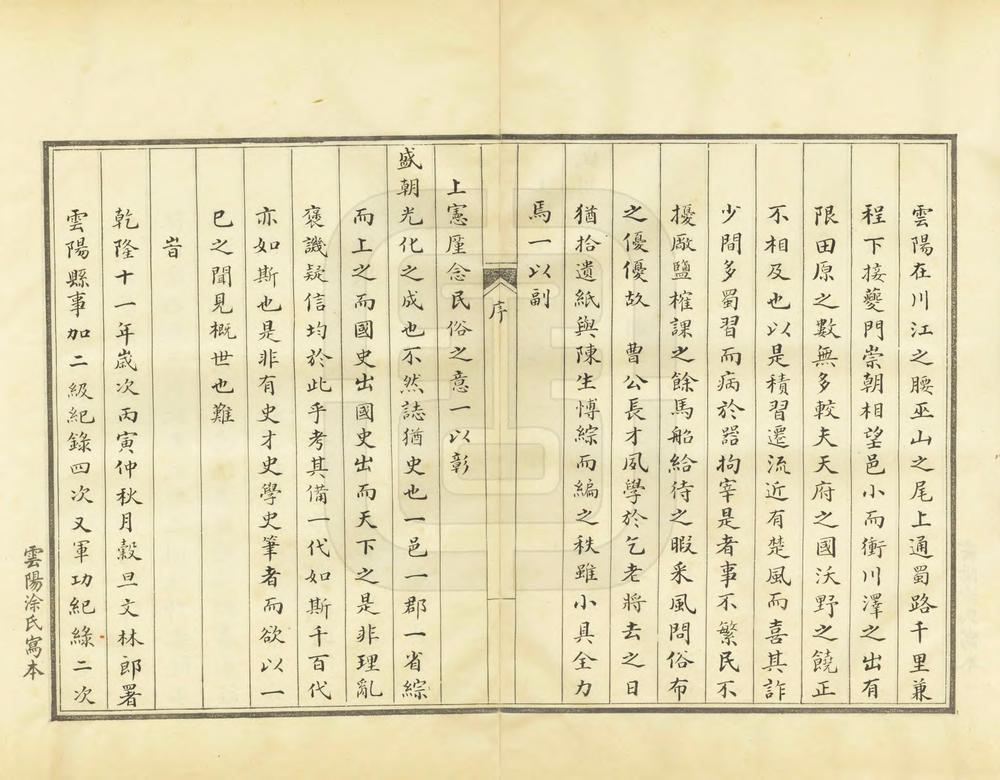 雲陽在川江之腰巫山之尾上通蜀路千里兼
程下接夔門崇朝相望邑小而衝川澤之出有
限田原之數無多較夫天府之國沃野之饒正
不相及也以是積習遷流近有楚風而喜其詐
少間多蜀習而病於嚚拘宰是者事不繁民不
擾厰鹽榷課之餘馬船給待之暇采風問俗布
之優優故　曹公長才夙學於乞老將去之日
猶拾遺紙與陳生愽綜而編之秩雖小具全力
焉一以副
上憲厪念民俗之意一以彰
盛朝光化之成也不然誌猶史也一邑一郡一省綜
而上之而國史出國史出而天下之是非理亂
褒譏疑信均於此乎考其備一代如斯千百代
亦如斯也是非有史才史學史筆者而欲以一
已之聞見概世也難
旹
乾隆十一年歲次丙寅仲秋月穀旦文林郎署
雲陽縣事加二級紀錄四次又軍功紀綠二次
序
雲陽涂氏寫本